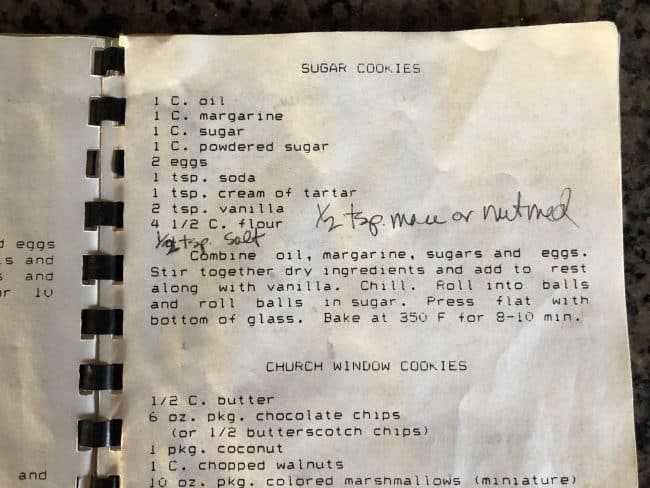 SUGAR COOKIES
1 C. oil
1 C. margarine
1 C. sugar
1 C. powdered sugar
2 eggs
1 tsp. soda
1 tsp. cream of tartar
2 tsp. vanilla
4 1/2 C. flour
1/2 tsp. mace or nutmeg
1/2 tsp. salt
Combine oil, margarine, sugars and eggs.
Stir together dry ingredients and add to rest
along with vanilla. Chill. Roll into balls
and roll balls in sugar. Press flat with
bottom of glass. Bake at 350 F for 8-10 min.
CHURCH WINDOW COOKIES
1/2 C. butter
6 oz. pkg. chocolate chips
(or 1/2 butterscotch chips)
1 pkg. coconut
1 C. chopped walnuts
10 oz. pkg. colored marshmallows (miniature)
eggs
and
and
10
and